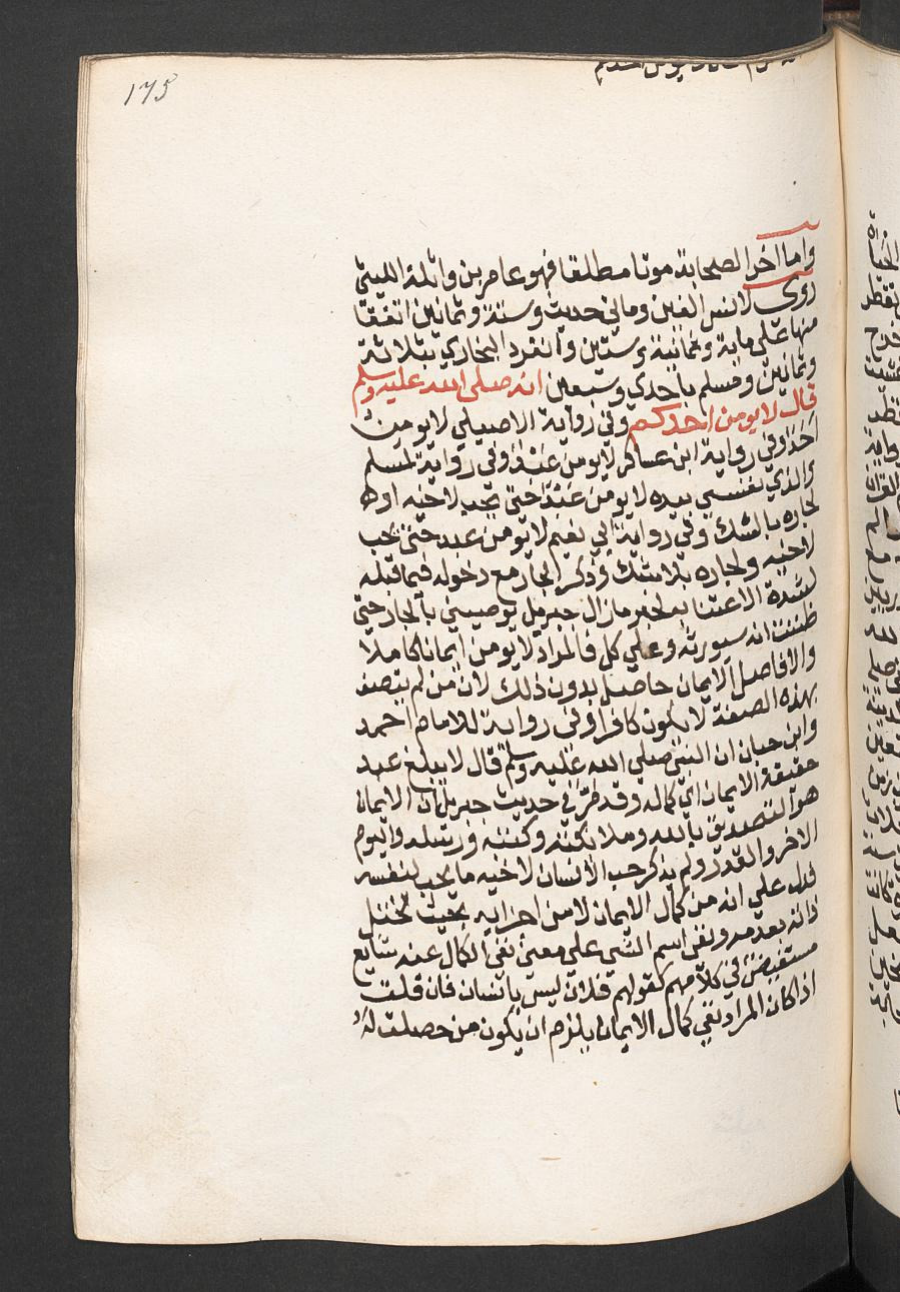 175
واما اخر الصحابة موتا مطلقا فهو عامر بن واثلة الليثي
روى لانس الفين وماتي حديث وستة وثمانين اتفقا
منها على ماية وثمانية وستين وانفرد البخاري بثلاثة
وثمانين ومسلم باحدي وسبعين انه صلى الله عليه وسلم
قال لا يومن احدكم وفي رواية الاصيلي لا يومن
احد وفي رواية ابن عساكر لا يومن عبد وفي رواية لمسلم
والذي نفسي بيده لا يومن عبد حتى يحب لاخيه او
لجاره بالشك وفي رواية ابي نعيم لا يومن عبد حتى يحب
لاخيه ولجاره بلا شك وذكر الجار مع دخوله فيما قبله
لشدة الاعتنا به لخبر مازال جبريل يوصيني بالجار حتى
ظننت انه سيورثه وعلي كل فالمراد لا يومن ايمانا كاملا
والا فاصل الايمان حاصل بدون ذلك لان من لم يتصف
بهذه الصفة لا يكون كافرا وفي رواية للامام احمد
وابن حبان ان النبي صلي الله عليه وسلم قال لا يبلغ عبد
حقيقة الايمان اي كماله وقد مر في حديث جبريل ان الايمان
هو التصديق بالله وملائكته وكتبه ورسله واليوم
الاخر والقدر ولم يذكر حب الانسان لاخيه ما يحب لنفسه
فدل علي انه من كمال الايمان لا من اجزايه بحيث تختل
ذاته بعدمه ونفي اسم الشي علي معني نفي الكمال عنه شايع
مستفيض في كلامهم كقولهم فلان ليس بانسان فان قلت
اذا كان المراد نفي كمال الايمان يلزم ان يكون من حصلت له